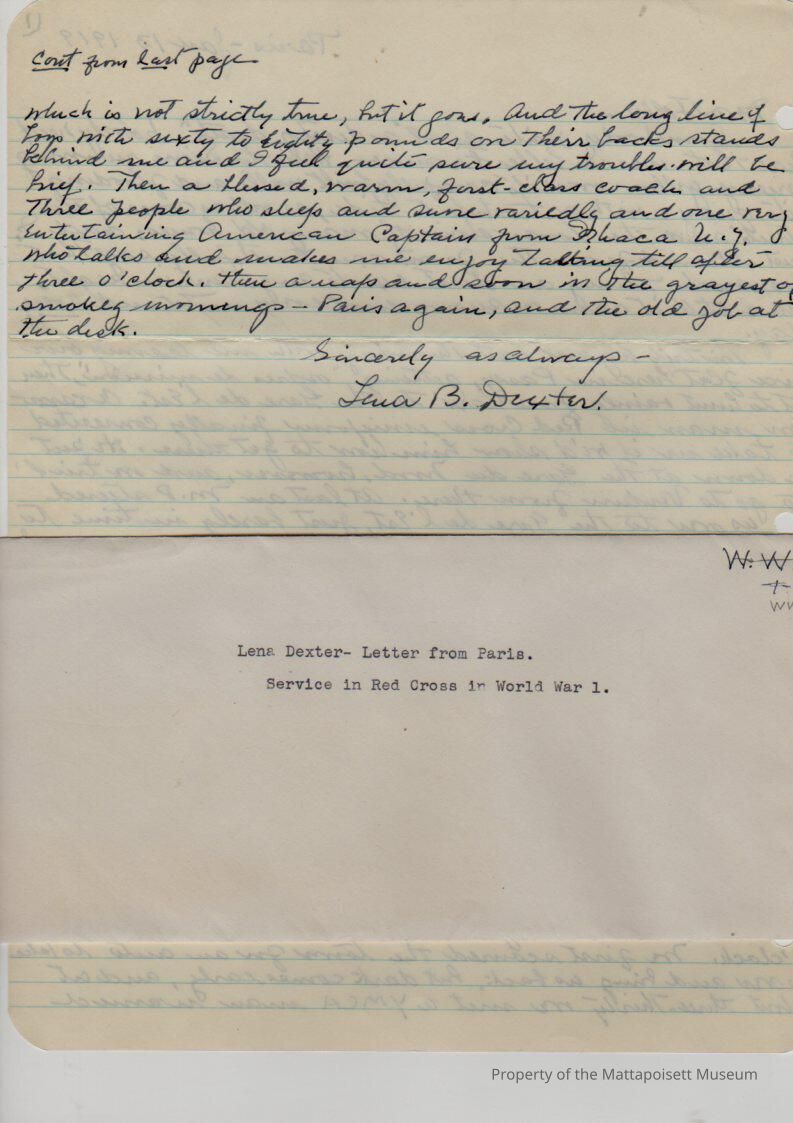 Cont from last page
which is not strictly true, but it goes. And the long line of
boys with sixty to eighty pounds on their backs stands
behind me and I feel quite sure my troubles will be
brief. Then a blessed, warm, first-class coach and
three people who sleep and snore variedly and one very
entertaining American Captain from Ithaca N.Y.
who talks and makes me enjoy talking till after
three o'clock. Then a nap and soon in the grayest of
smokey mornings - Paris again, and the old job at
the desk.
Sincerely as always -
Lena B. Dexter.
W. W
WW
Lena Dexter- Letter from Paris.
Service in Red Cross in World War 1.
Property of the Mattapoisett Museum